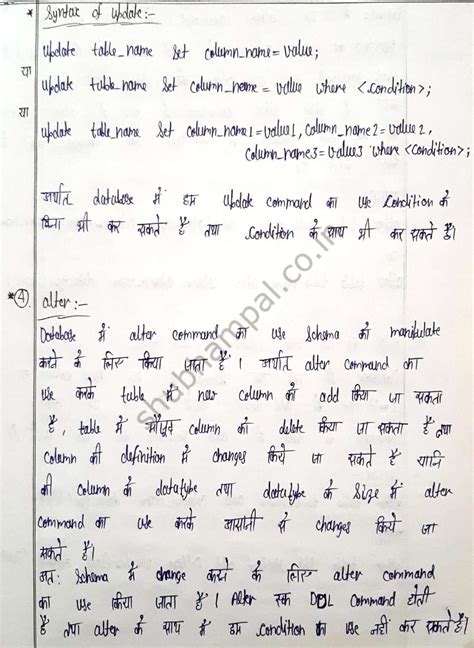 * Syntax of update:-
update table_name Set column_name = value;
या
update table_name Set column_name = value where <condition>;
या
update table_name Set column_name1 = value1, column_name2 = value2,
column_name3 = value3 where <condition>;
अर्थात database में हम update command का use condition के
बिना भी कर सकते हैं तथा condition के साथ भी कर सकते हैं।
* ④ alter:-
Database में alter command का use schema को manipulate
करने के लिए किया जाता है। अर्थात alter command का
use करके table में new column को add किया जा सकता
है, table में मौजूद column को delete किया जा सकता है तथा
column की definition में changes किये जा सकते हैं यानि
की column के datatype तथा datatype के size में alter
command का use करके आसानी से changes किये जा
सकते हैं।
अत: schema में change करने के लिए alter command
का use किया जाता है। Alter एक DDL command होती
है तथा alter के साथ में हम condition का use नहीं कर सकते हैं।
shubhampal.co.in